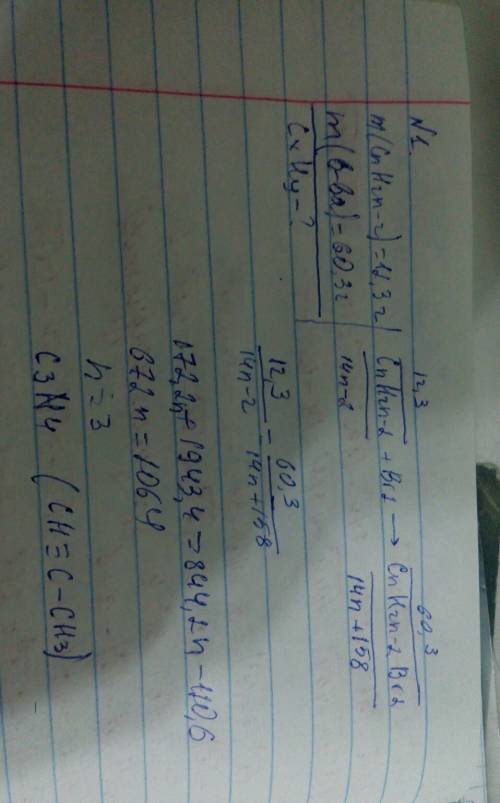 N1.
m(CnH2n-2) = 12,3г
m(в-ва) = 60,3г
CxHy - ?
12,3 60,3
CnH2n-2 + Br2 → CnH2n-2Br2
14n-2 14n+158
12,3 / 14n-2 = 60,3 / 14n+158
172,2n + 1943,4 = 844,2n - 120,6
672n = 2064
n = 3
C3H4 (CH≡C-CH3)